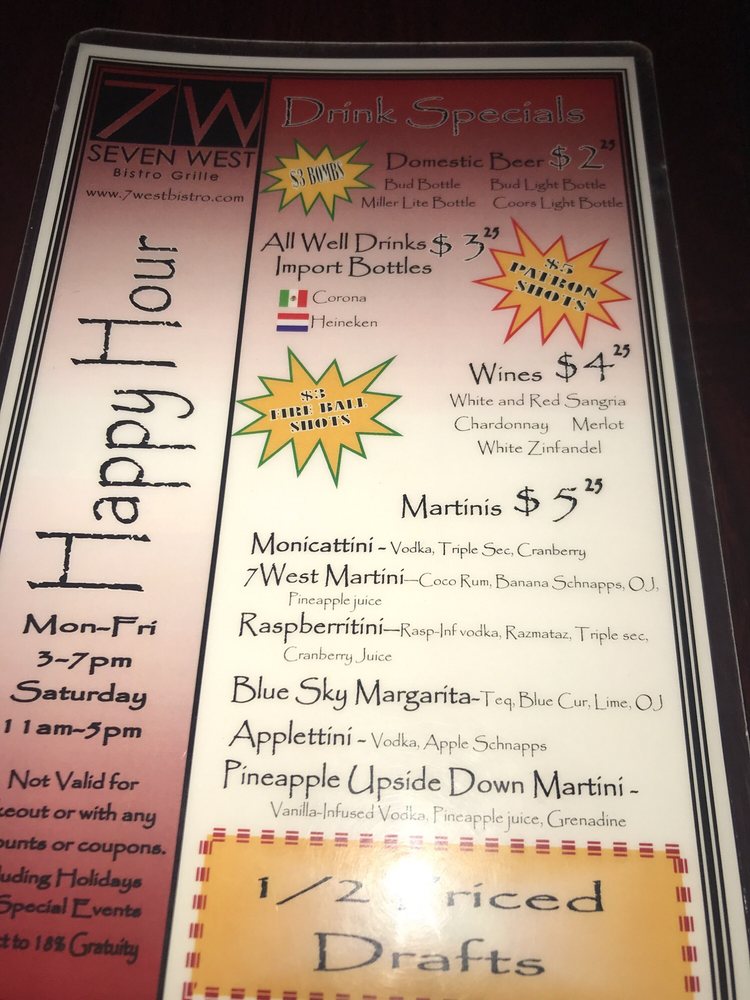 7W
SEVEN WEST
Bistro Grille
www.7westbistro.com
Happy Hour
Mon-Fri
3-7pm
Saturday
11am-5pm
Not Valid for
or with any
or coupons.
Holidays
Special Events
to 18% Gratuity
Drink Specials
$3 BOMBS
Domestic Beer $2.25
Bud Bottle Bud Light Bottle
Miller Lite Bottle Coors Light Bottle
All Well Drinks $3.25
Import Bottles
Corona
Heineken
$5
PATRON
SHOTS
$3
FIRE BALL
SHOTS
Wines $4.25
White and Red Sangria
Chardonnay Merlot
White Zinfandel
Martinis $5.25
Monicattini - Vodka, Triple Sec, Cranberry
7West Martini—Coco Rum, Banana Schnapps, OJ,
Pineapple juice
Raspberritini—Rasp-Inf vodka, Razmataz, Triple sec,
Cranberry Juice
Blue Sky Margarita-Teq, Blue Cur, Lime, OJ
Applettini - Vodka, Apple Schnapps
Pineapple Upside Down Martini -
Vanilla-Infused Vodka, Pineapple juice, Grenadine
1/2 Priced
Drafts